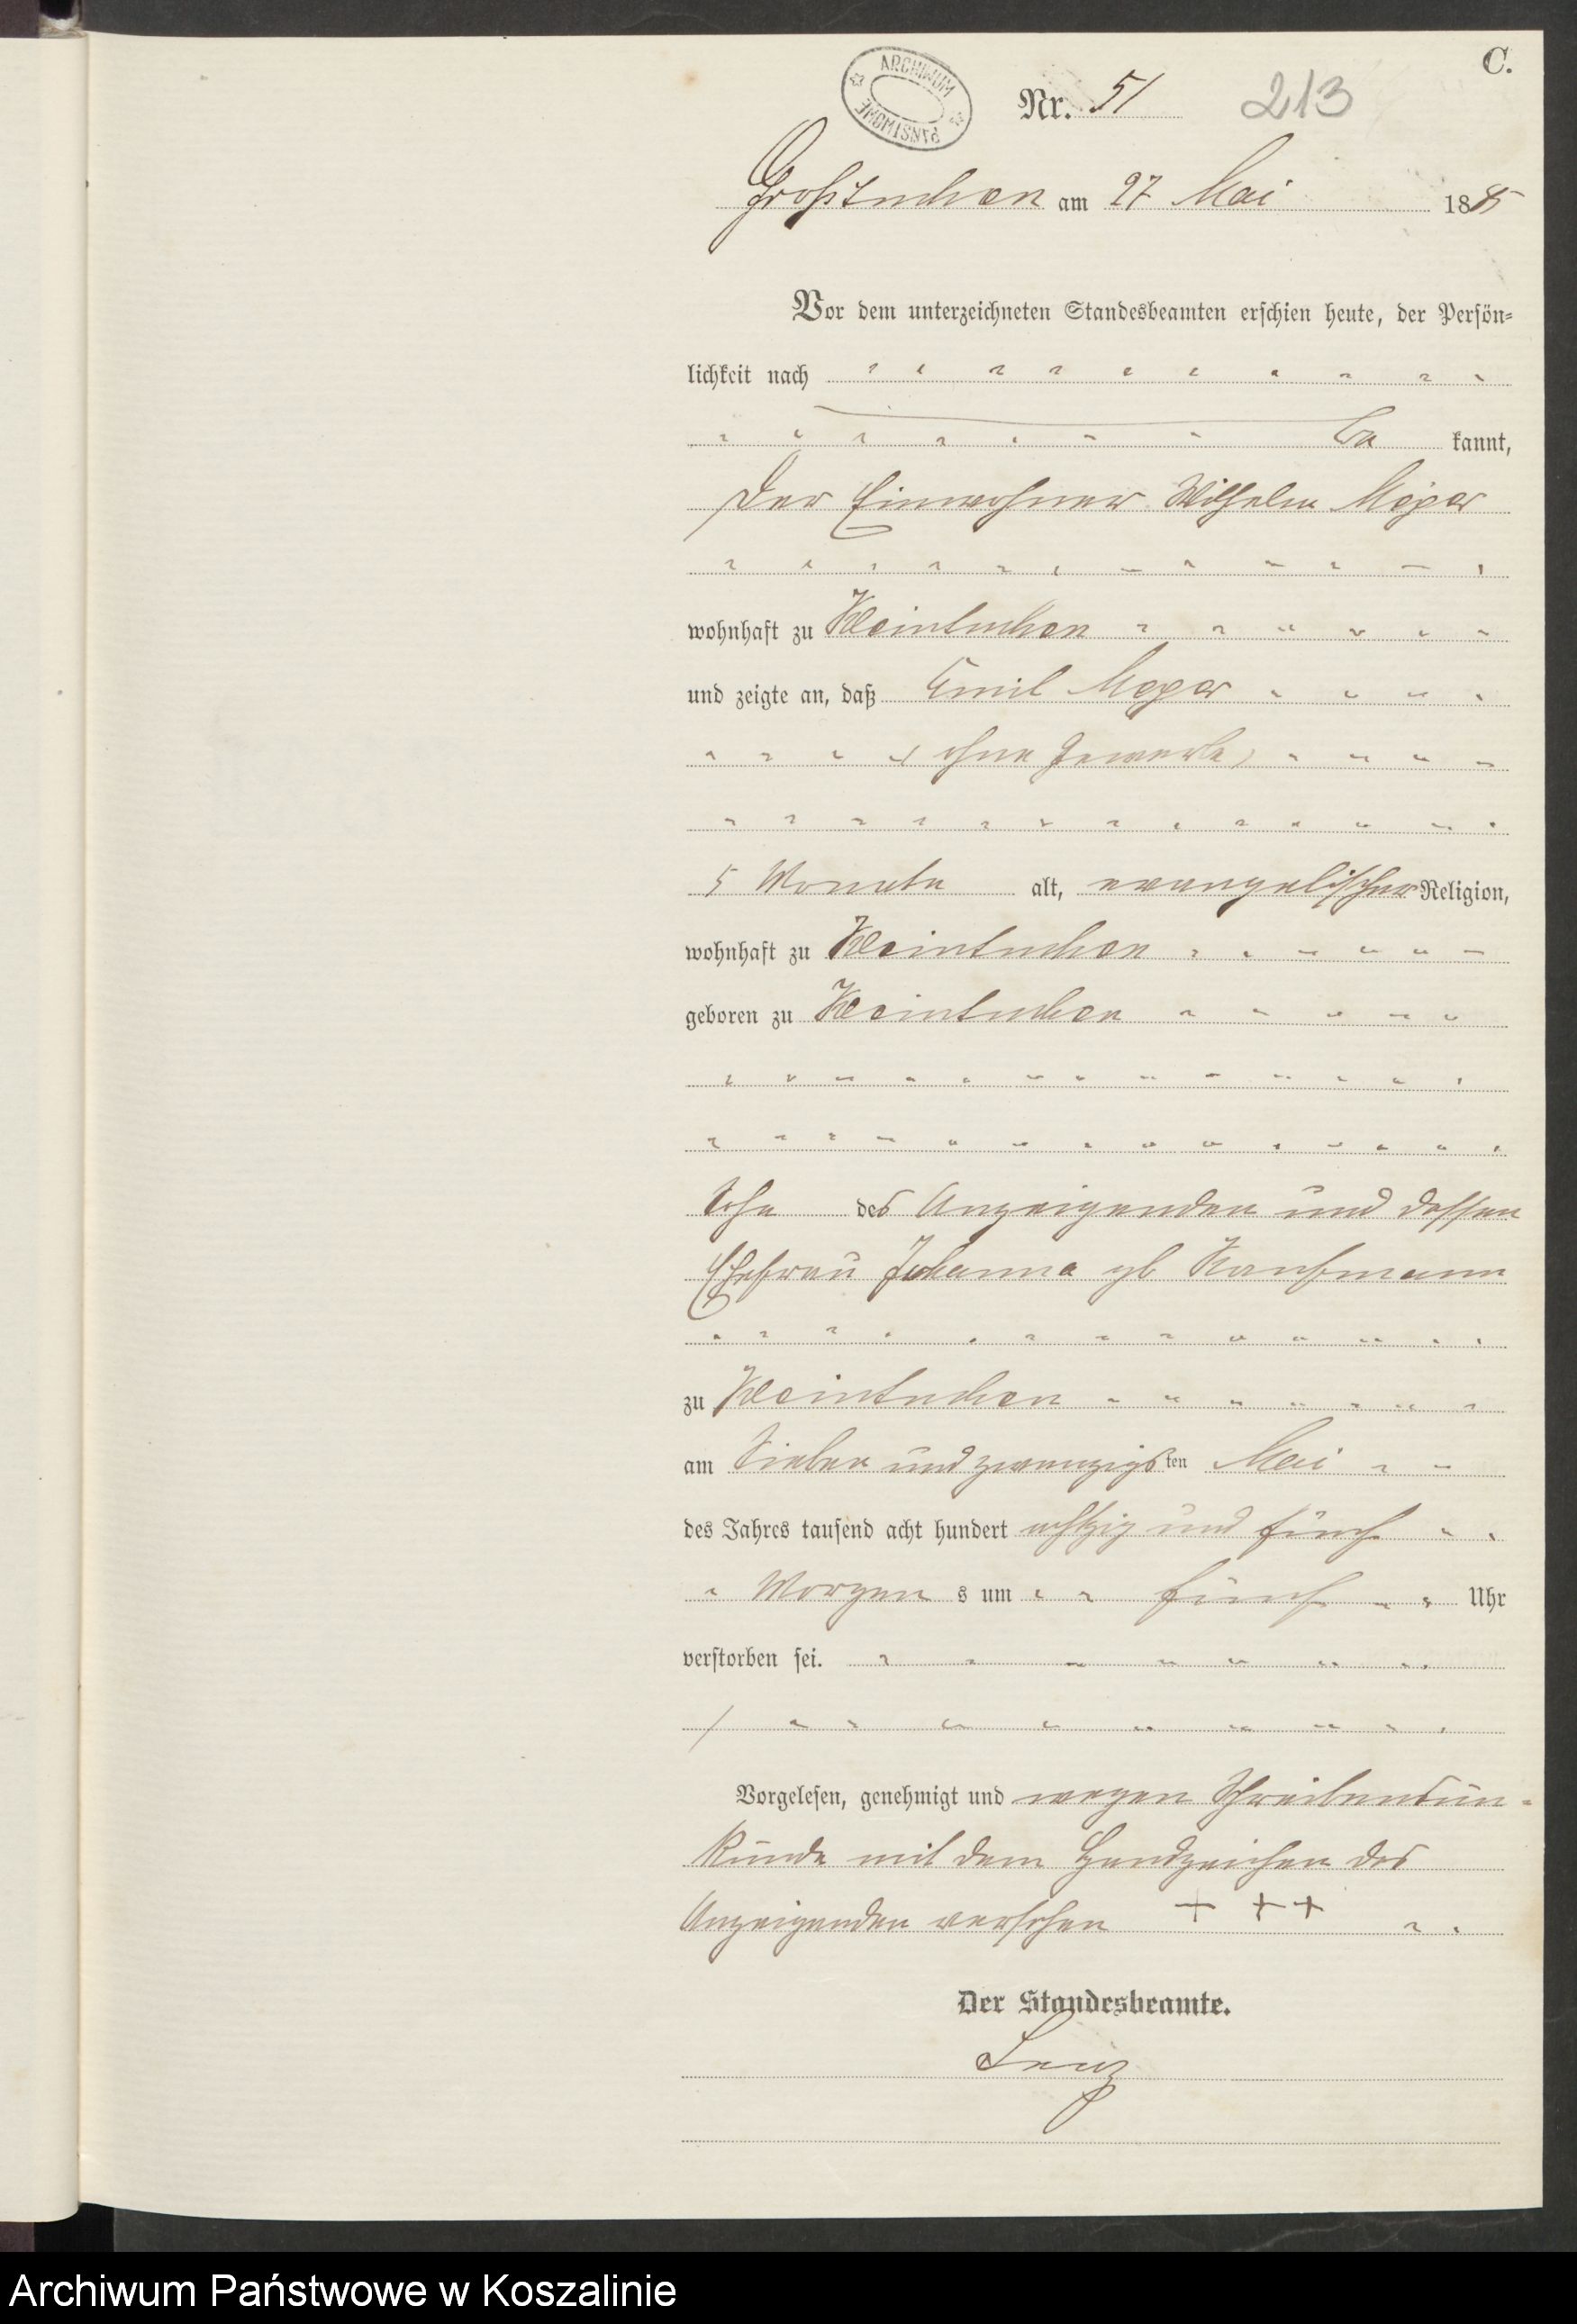 C.
ARCHIWUM PAŃSTWOWE
Nr. 51 213
Großtuchen am 27 Mai 1885
Vor dem unterzeichneten Standesbeamten erschien heute, der Persön-
lichkeit nach
be kannt,
Der Einwohner Wilhelm
wohnhaft zu Kleintuchen
und zeigte an, daß Emil
(ohne Gewerbe)
5 Monate alt, evangelischer Religion,
wohnhaft zu Kleintuchen
geboren zu Kleintuchen
Sohn des Anzeigenden und dessen
Ehefrau Johanna gb Kaufmann
zu Kleintuchen
am Sieben und zwanzigsten Mai
des Jahres tausend acht hundert achtzig und fünf
Morgen s um fünf Uhr
verstorben sei.
Vorgelesen, genehmigt und wegen Schreibensun-
kunde mit dem Handzeichen des
Anzeigenden versehen + + +
Der Standesbeamte.
Lenz
Archiwum Państwowe w Koszalinie